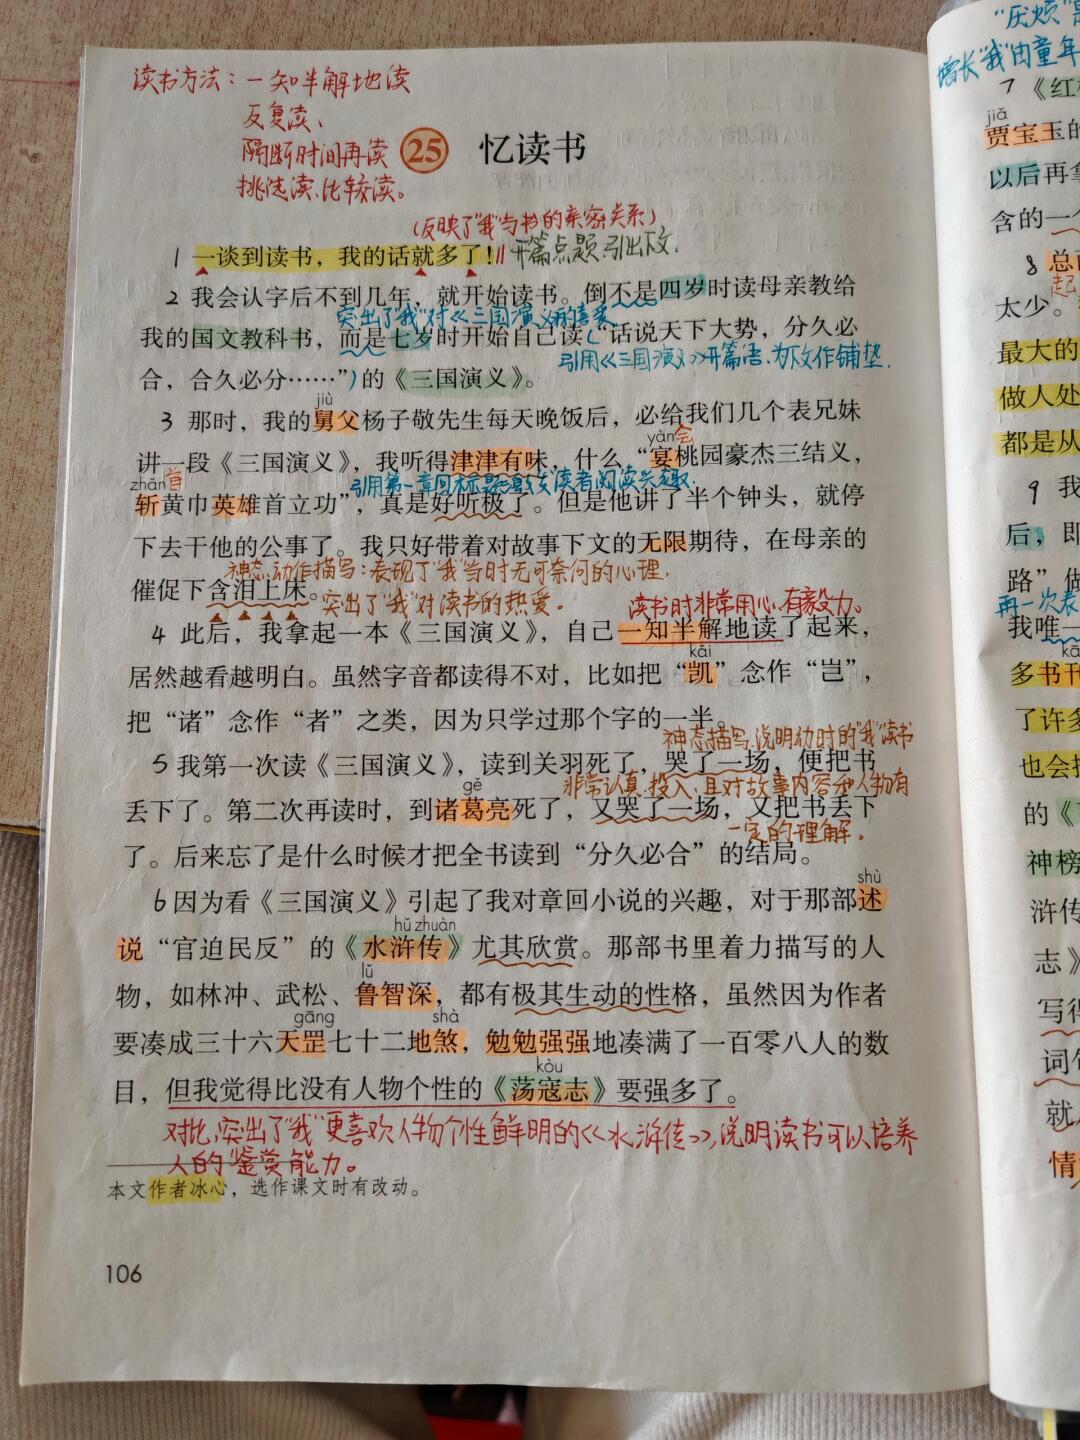 读书方法：一知半解地读
反复读、
隔断时间再读
挑选读、比较读。
25 忆读书
(反映了"我"与书的亲密关系)
1 一谈到读书，我的话就多了！‖开篇点题，引出下文.
2 我会认字后不到几年，就开始读书。倒不是四岁时读母亲教给
突出了"我"对《三国演义》的喜爱
我的国文教科书，而是七岁时开始自己读(“话说天下大势，分久必
引用《三国演义》开篇语，为下文作铺垫.
合，合久必分……”)的《三国演义》。
jiù
3 那时，我的舅父杨子敬先生每天晚饭后，必给我们几个表兄妹
yàn 会
讲一段《三国演义》，我听得津津有味，什么“宴桃园豪杰三结义，
zhǎn 首
引用第一章回标题,激发读者阅读兴趣.
斩黄巾英雄首立功”，真是好听极了。但是他讲了半个钟头，就停
下去干他的公事了。我只好带着对故事下文的无限期待，在母亲的
神态、动作描写：表现了"我"当时无可奈何的心理,
催促下含泪上床。突出了"我"对读书的热爱。
读书时非常用心,有毅力。
4 此后，我拿起一本《三国演义》，自己一知半解地读了起来，
kǎi
居然越看越明白。虽然字音都读得不对，比如把“凯”念作“岂”，
把“诸”念作“者”之类，因为只学过那个字的一半。
神态描写,说明幼时的"我"读书
5 我第一次读《三国演义》，读到关羽死了，哭了一场，便把书
非常认真、投入,且对故事内容和人物有
gě
丢下了。第二次再读时，到诸葛亮死了，又哭了一场，又把书丢下
一定的理解.
了。后来忘了是什么时候才把全书读到“分久必合”的结局。
shù
6 因为看《三国演义》引起了我对章回小说的兴趣，对于那部述
hǔ zhuàn
说“官迫民反”的《水浒传》尤其欣赏。那部书里着力描写的人
lǔ
物，如林冲、武松、鲁智深，都有极其生动的性格，虽然因为作者
gāng shà
要凑成三十六天罡七十二地煞，勉勉强强地凑满了一百零八人的数
kòu
目，但我觉得比没有人物个性的《荡寇志》要强多了。
对比,突出了"我"更喜欢人物个性鲜明的《水浒传》,说明读书可以培养
人的鉴赏能力。
本文作者冰心，选作课文时有改动。
106
"厌烦"
增长"我"由童年
7《红
jiǎ
贾宝玉的
以后再拿
含的一个
8 总
起
太少。
最大的
做人处
都是从
9 我
后，即
路”做
再一次表
我唯一
kān
多书刊
了许多
也会
的《
神榜
浒传
志》
写得
词句
就
情